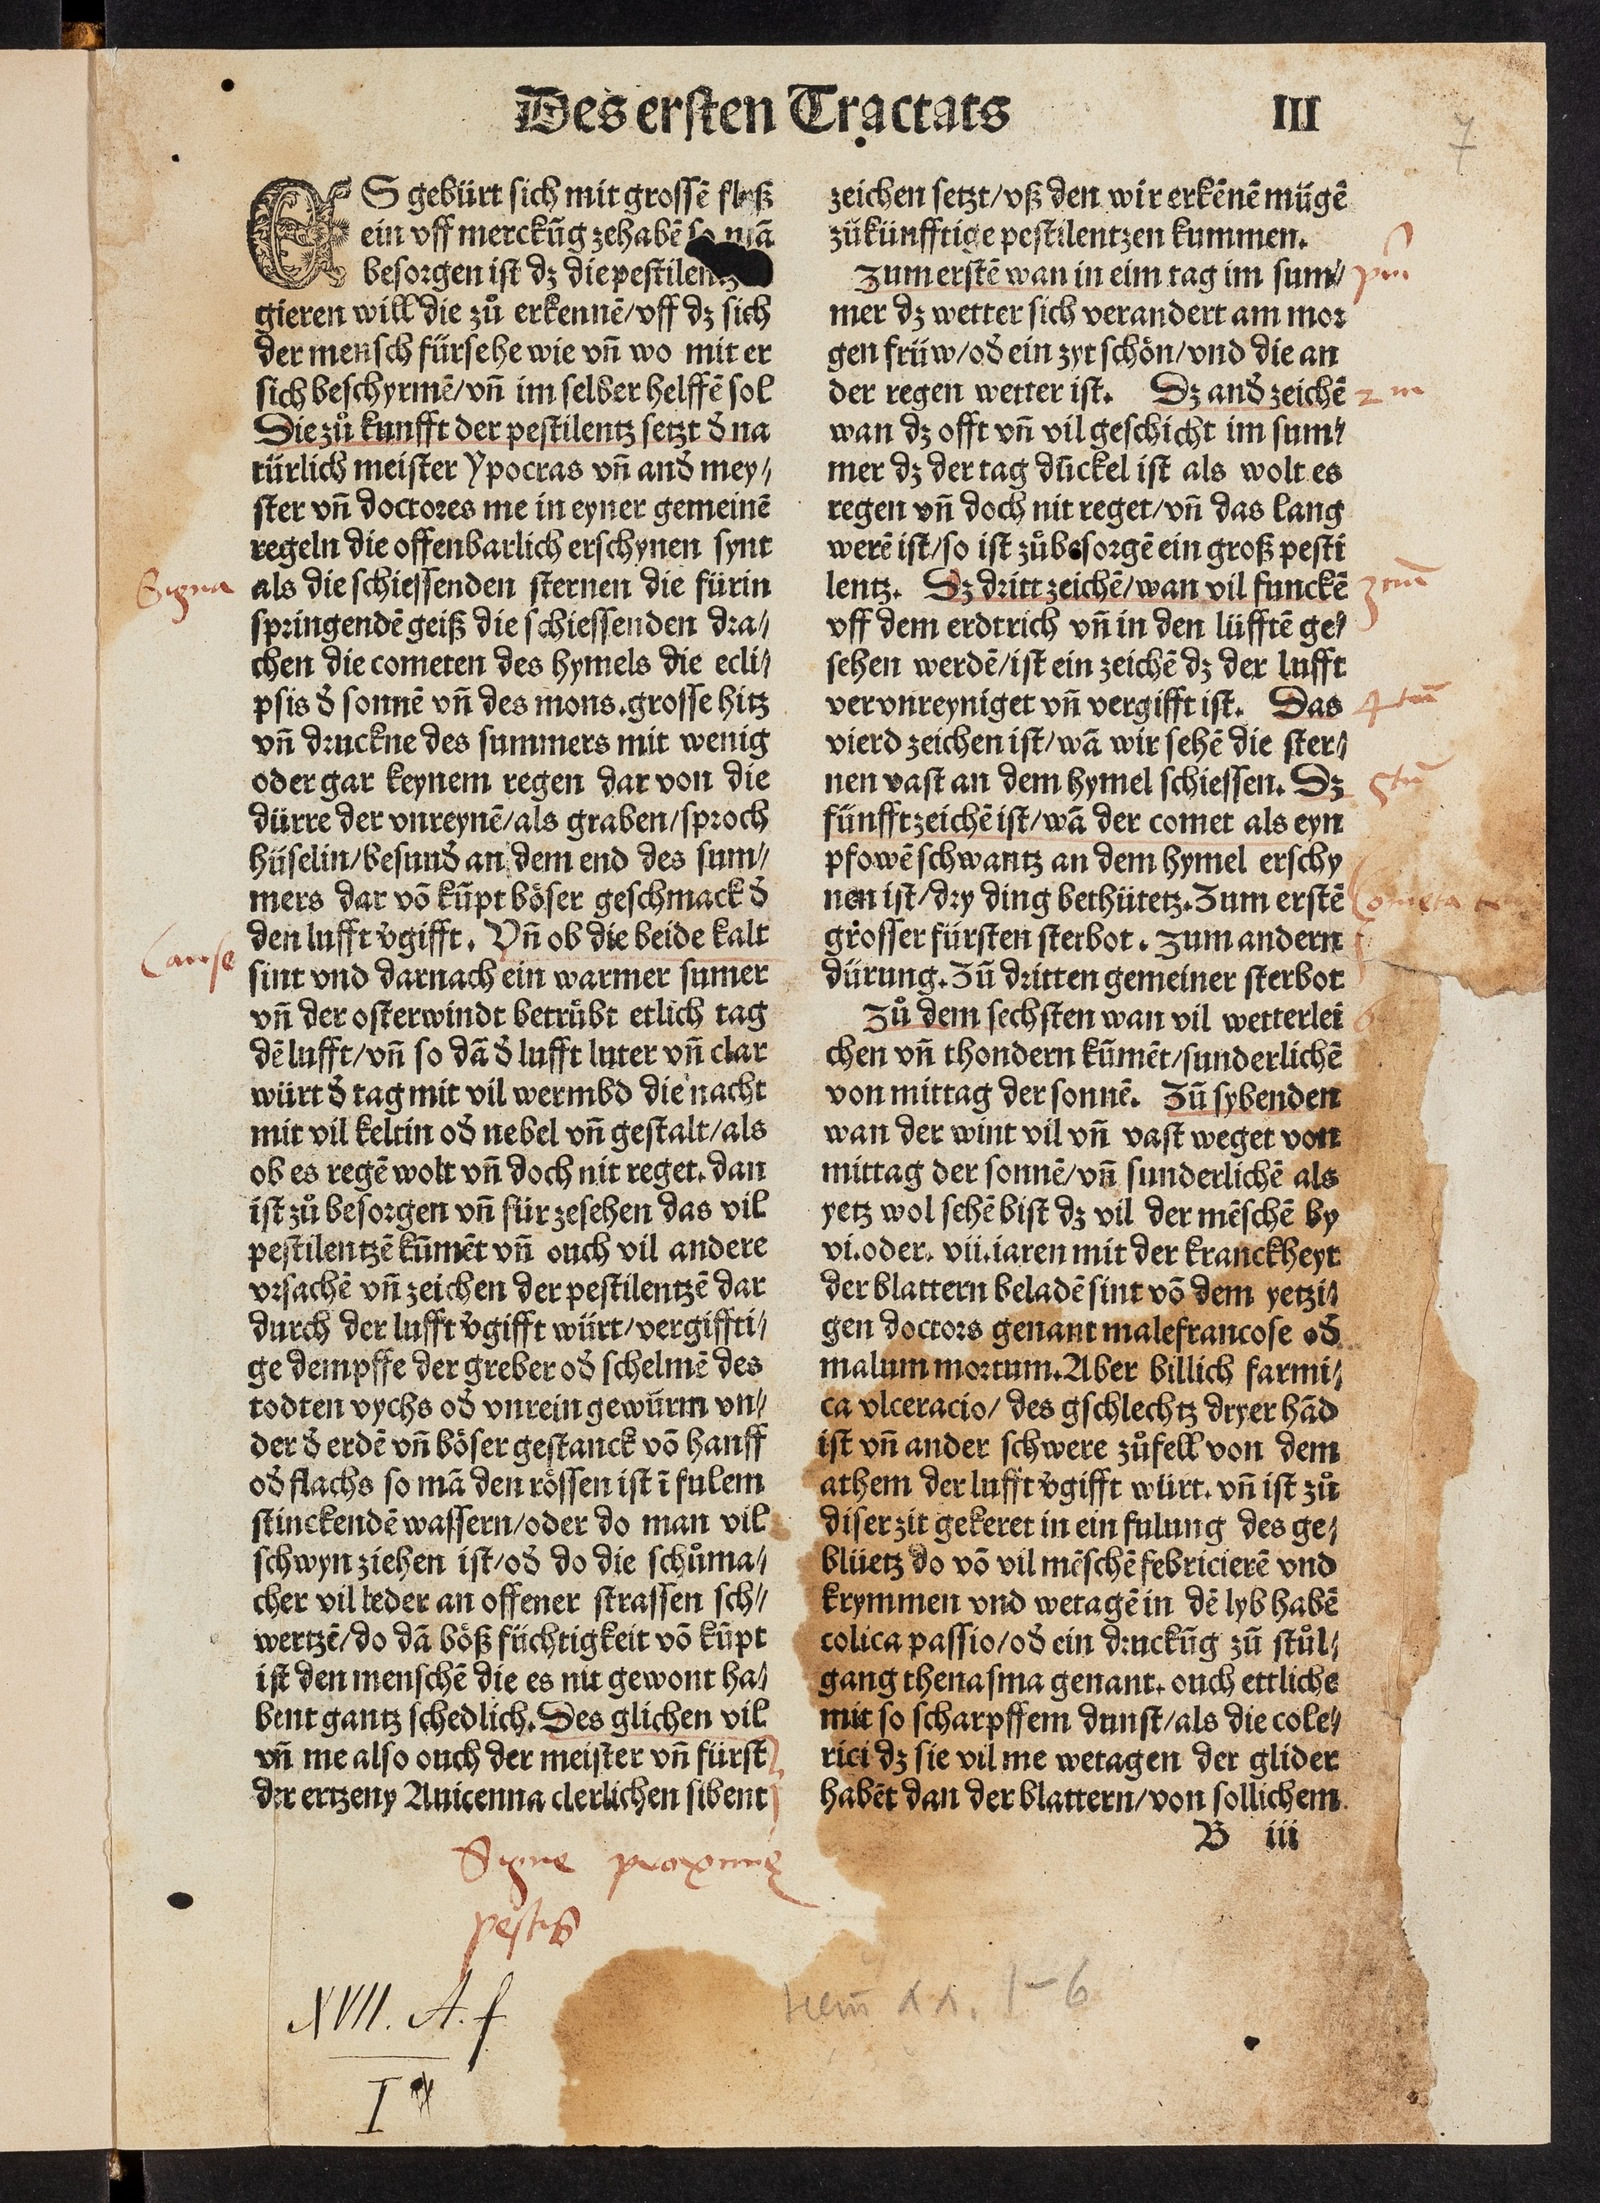 Des ersten Tractats
III
7
ES gebürt sich mit grossē flyß
ein vff merckūg zehabē so mā
besorgen ist dz die pestilentz
gieren will die zů erkennē/vff dz sich
der mensch fürsehe wie vñ wo mit er
sich beschyrmē/vñ im selber helffē sol
Die zů kunfft der pestilentz setzt đ na
türlich meister Ypocras vñ anđ mey⸗
ster vñ doctores me in eyner gemeinē
regeln die offenbarlich erschynen synt
Signa
als die schiessenden sternen die fürin
springendē geiß die schiessenden dra⸗
chen die cometen des hymels die ecli⸗
psis đ sonnē vñ des mons.grosse hitz
vñ druckne des summers mit wenig
oder gar keynem regen dar von die
dürre der vnreynē/als graben/sproch
hüselin/besunđ an dem end des sum⸗
mers dar vō kūpt böser geschmack đ
den lufft v̄gifft. Vñ ob die beide kalt
Cause
sint vnd darnach ein warmer sumer
vñ der osterwindt betrůbt etlich tag
dē lufft/vñ so dā đ lufft luter vñ clar
würt đ tag mit vil wermbd die nacht
mit vil keltin ođ nebel vñ gestalt/als
ob es regē wolt vñ doch nit reget.dan
ist zů besorgen vñ für zesehen das vil
pestilentzē kūmēt vñ ouch vil andere
vrsachē vñ zeichen der pestilentzē dar
durch der lufft v̄gifft würt/vergiffti⸗
ge dempffe der greber ođ schelmē des
todten vychs ođ vnrein gewürm vn⸗
der đ erdē vñ böser gestanck vō hanff
ođ flachs so mā den rössen ist ī fulem
stinckendē wassern/oder do man vil
schwyn ziehen ist/ođ do die schůma⸗
cher vil leder an offener strassen sch⸗
wertzē/do dā böß füchtigkeit vō kūpt
ist den menschē die es nit gewont ha⸗
bent gantz schedlich.Des glichen vil
vñ me also ouch der meister vñ fürst
der ertzeny Auicenna clerlichen sibent
zeichen setzt/vß den wir erkēnē mügē
zůkünfftige pestilentzen kummen.
Zum erstē wan in eim tag im sum⸗
pm̄
mer dz wetter sich verandert am mor
gen früw/ođ ein zyt schön/vnd die an
der regen wetter ist. Dz anđ zeichē
2 m
wan dz offt vñ vil geschicht im sum⸗
mer dz der tag dūckel ist als wolt es
regen vñ doch nit reget/vñ das lang
werē ist/so ist zůbesorgē ein groß pesti
lentz. Dz dritt zeichē/wan vil funckē
3tiū
vff dem erdtrich vñ in den lüfftē ge⸗
sehen werdē/ist ein zeichē dz der lufft
vervnreyniget vñ vergifft ist. Das
4tū
vierd zeichen ist/wā wir sehē die ster⸗
nen vast an dem hymel schiessen. Dz
5tū
fünfft zeichē ist/wā der comet als eyn
pfowē schwantz an dem hymel erschy
nen ist/dry ding bethütetz.Zum erstē
Cometa
grosser fürsten sterbot. Zum andern
dürung.Zū dritten gemeiner sterbot
Zů dem sechsten wan vil wetterlei
6
chen vñ thondern kūmēt/sunderlichē
von mittag der sonnē. Zū sybenden
wan der wint vil vñ vast weget von
mittag der sonnē/vñ sunderlichē als
yetz wol sehē bist dz vil der mēschē by
vi.oder. vii.iaren mit der kranckheyt
der blattern beladē sint vō dem yetzi⸗
gen doctors genant malefrancose ođ
malum mortum.Aber billich farmi⸗
ca vlceracio/ des gschlechtz dryer hād
ist vñ ander schwere zůfell von dem
athem der lufft v̄gifft würt. vñ ist zů
diser zit gekeret in ein fulung des ge⸗
blüetz do vō vil mēschē febricierē vnd
krymmen vnd wetagē in dē lyb habē
colica passio/ođ ein druckūg zū stůl⸗
gang thenasma genant. ouch ettliche
mit so scharpffem dunst/als die cole⸗
rici dz sie vil me wetagen der glider
habēt dan der blattern/von sollichem
B iii
Signe proxime
pestis
XVII. A. f
I
1-6